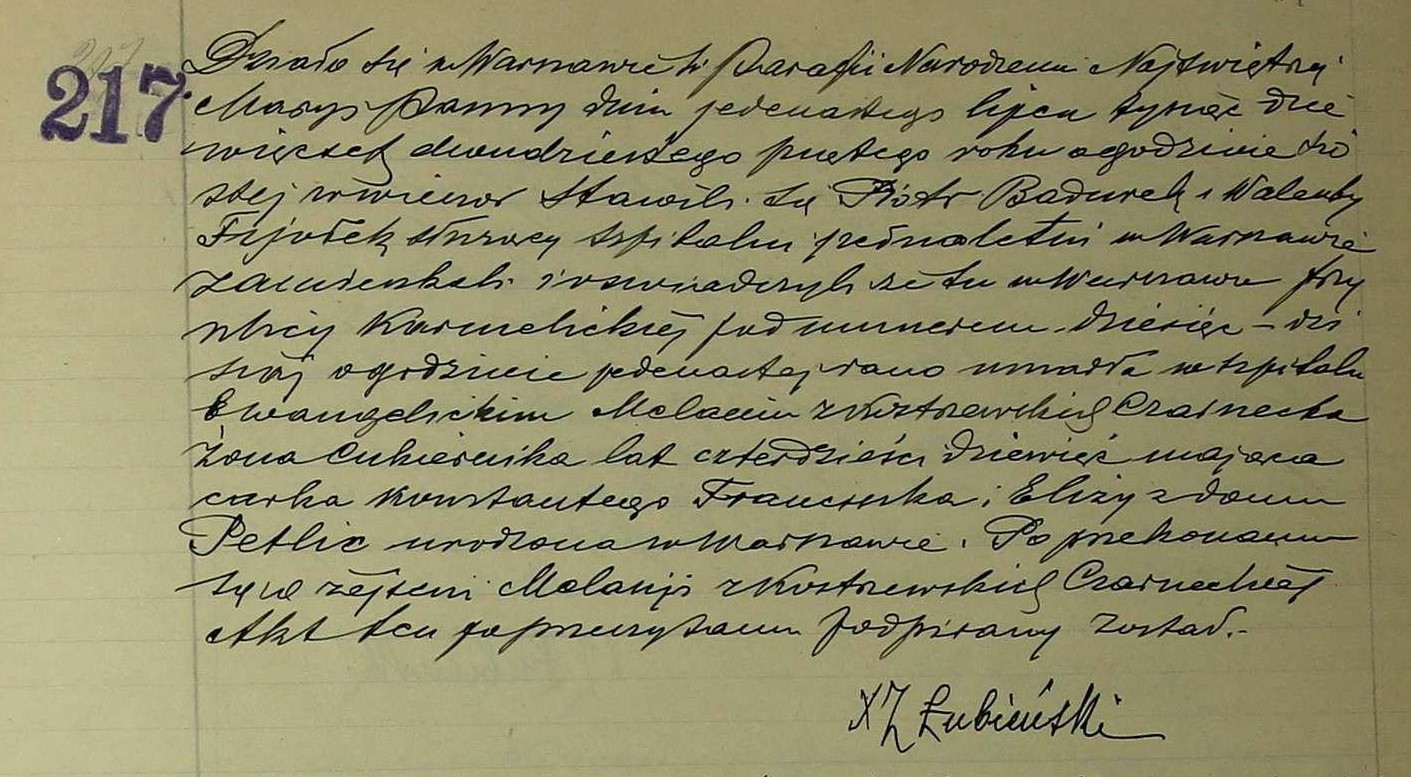 217.
Działo się w Warszawie w Parafii Narodzenia Najświętszej
Maryi Panny dnia jedenastego lipca tysiąc dzie
więćset dwudziestego piątego roku o godzinie szó
stej wieczór Stawili się Piotr Badurek i Walenty
Fijołek słurzący szpitalni pełnoletni w Warszawie
zamieszkali i oświadczyli że tu w Warszawie przy
ulicy Karmelickiej pod numerem dziesięć – dzi
siaj o godzinie jedenastej rano umarła w szpitalu
Ewangelickim Melania z Kostrzewskich Czarnecka
żona Cukiernika lat czterdzieści dziewięć mająca
córka Konstantego Franciszka i Elizy z domu
Petlic urodzona w Warszawie. Po przekonaniu
się o zejściu Melanji z Kostrzewskich Czarneckiej
Akt ten po przeczytaniu podpisany został.-
X Z Łubieński